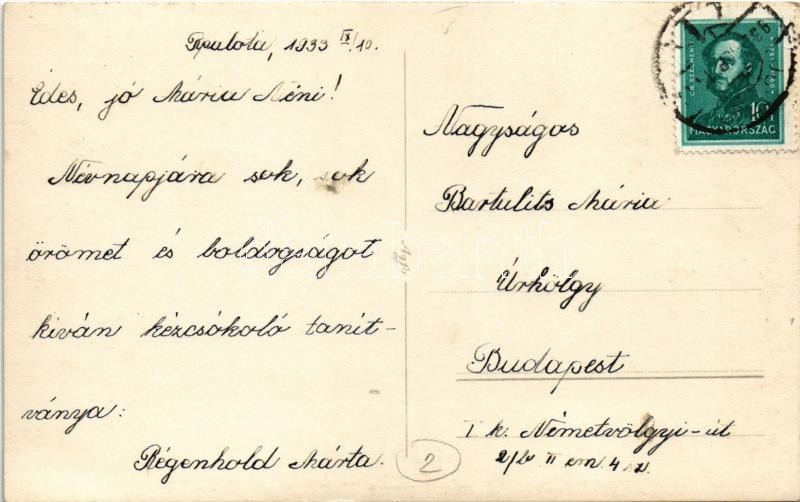 Rpalota, 1933 IX/10.
Édes, jó Mária Néni!
Névnapjára sok, sok
örömet és boldogságot
kíván kézcsókoló tanít-
ványa:
Régenhold Márta.
Agfa
GR. SZÉCHENYI
10
MAGYARORSZÁG
Nagyságos
Bartulits Mária
Úrhölgy
Budapest
I k. Németvölgyi-út
2/b II em. 4 sz.
2